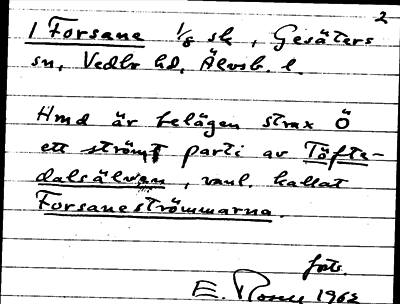 2
1 Forsane 1/8 sk, Gesäters
sn, Vedbo hd, Älvsb. l.
Hmd är belägen strax Ö
ett strömt parti av Töfte-
dalsälven, vanl. kallat
Forsaneströmmarna.
foto.
E. 1962